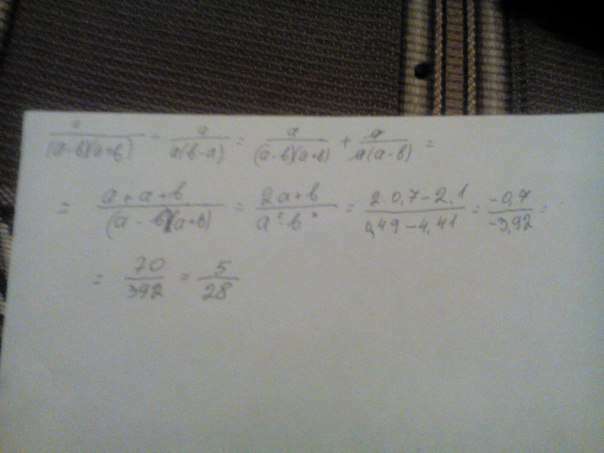 a/((a-b)(a+b)) - a/(a(b-a)) = a/((a-b)(a+b)) + a/(a(a-b)) =
= (a+a+b)/((a-b)(a+b)) = (2a+b)/(a²-b²) = (2·0,7-2,1)/(0,49-4,41) = -0,7/-3,92 =
= 70/392 = 5/28